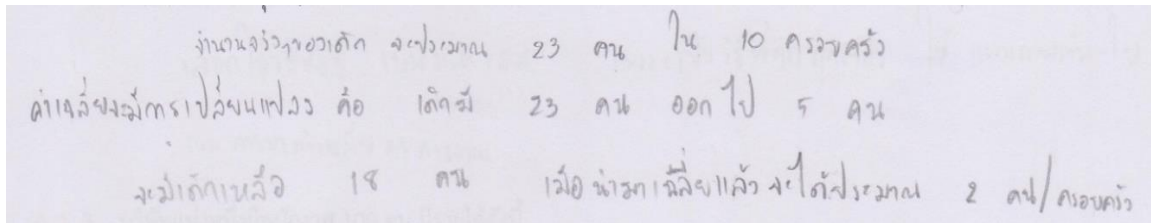 จำนวนจริงๆของเด็ก จะประมาณ 23 คน ใน 10 ครอบครัว
ค่าเฉลี่ยจะมีการเปลี่ยนแปลง คือ เด็กมี 23 คน ออกไป 5 คน
จะมีเด็กเหลือ 18 คน เมื่อนำมาเฉลี่ยแล้วจะได้ประมาณ 2 คน/ครอบครัว